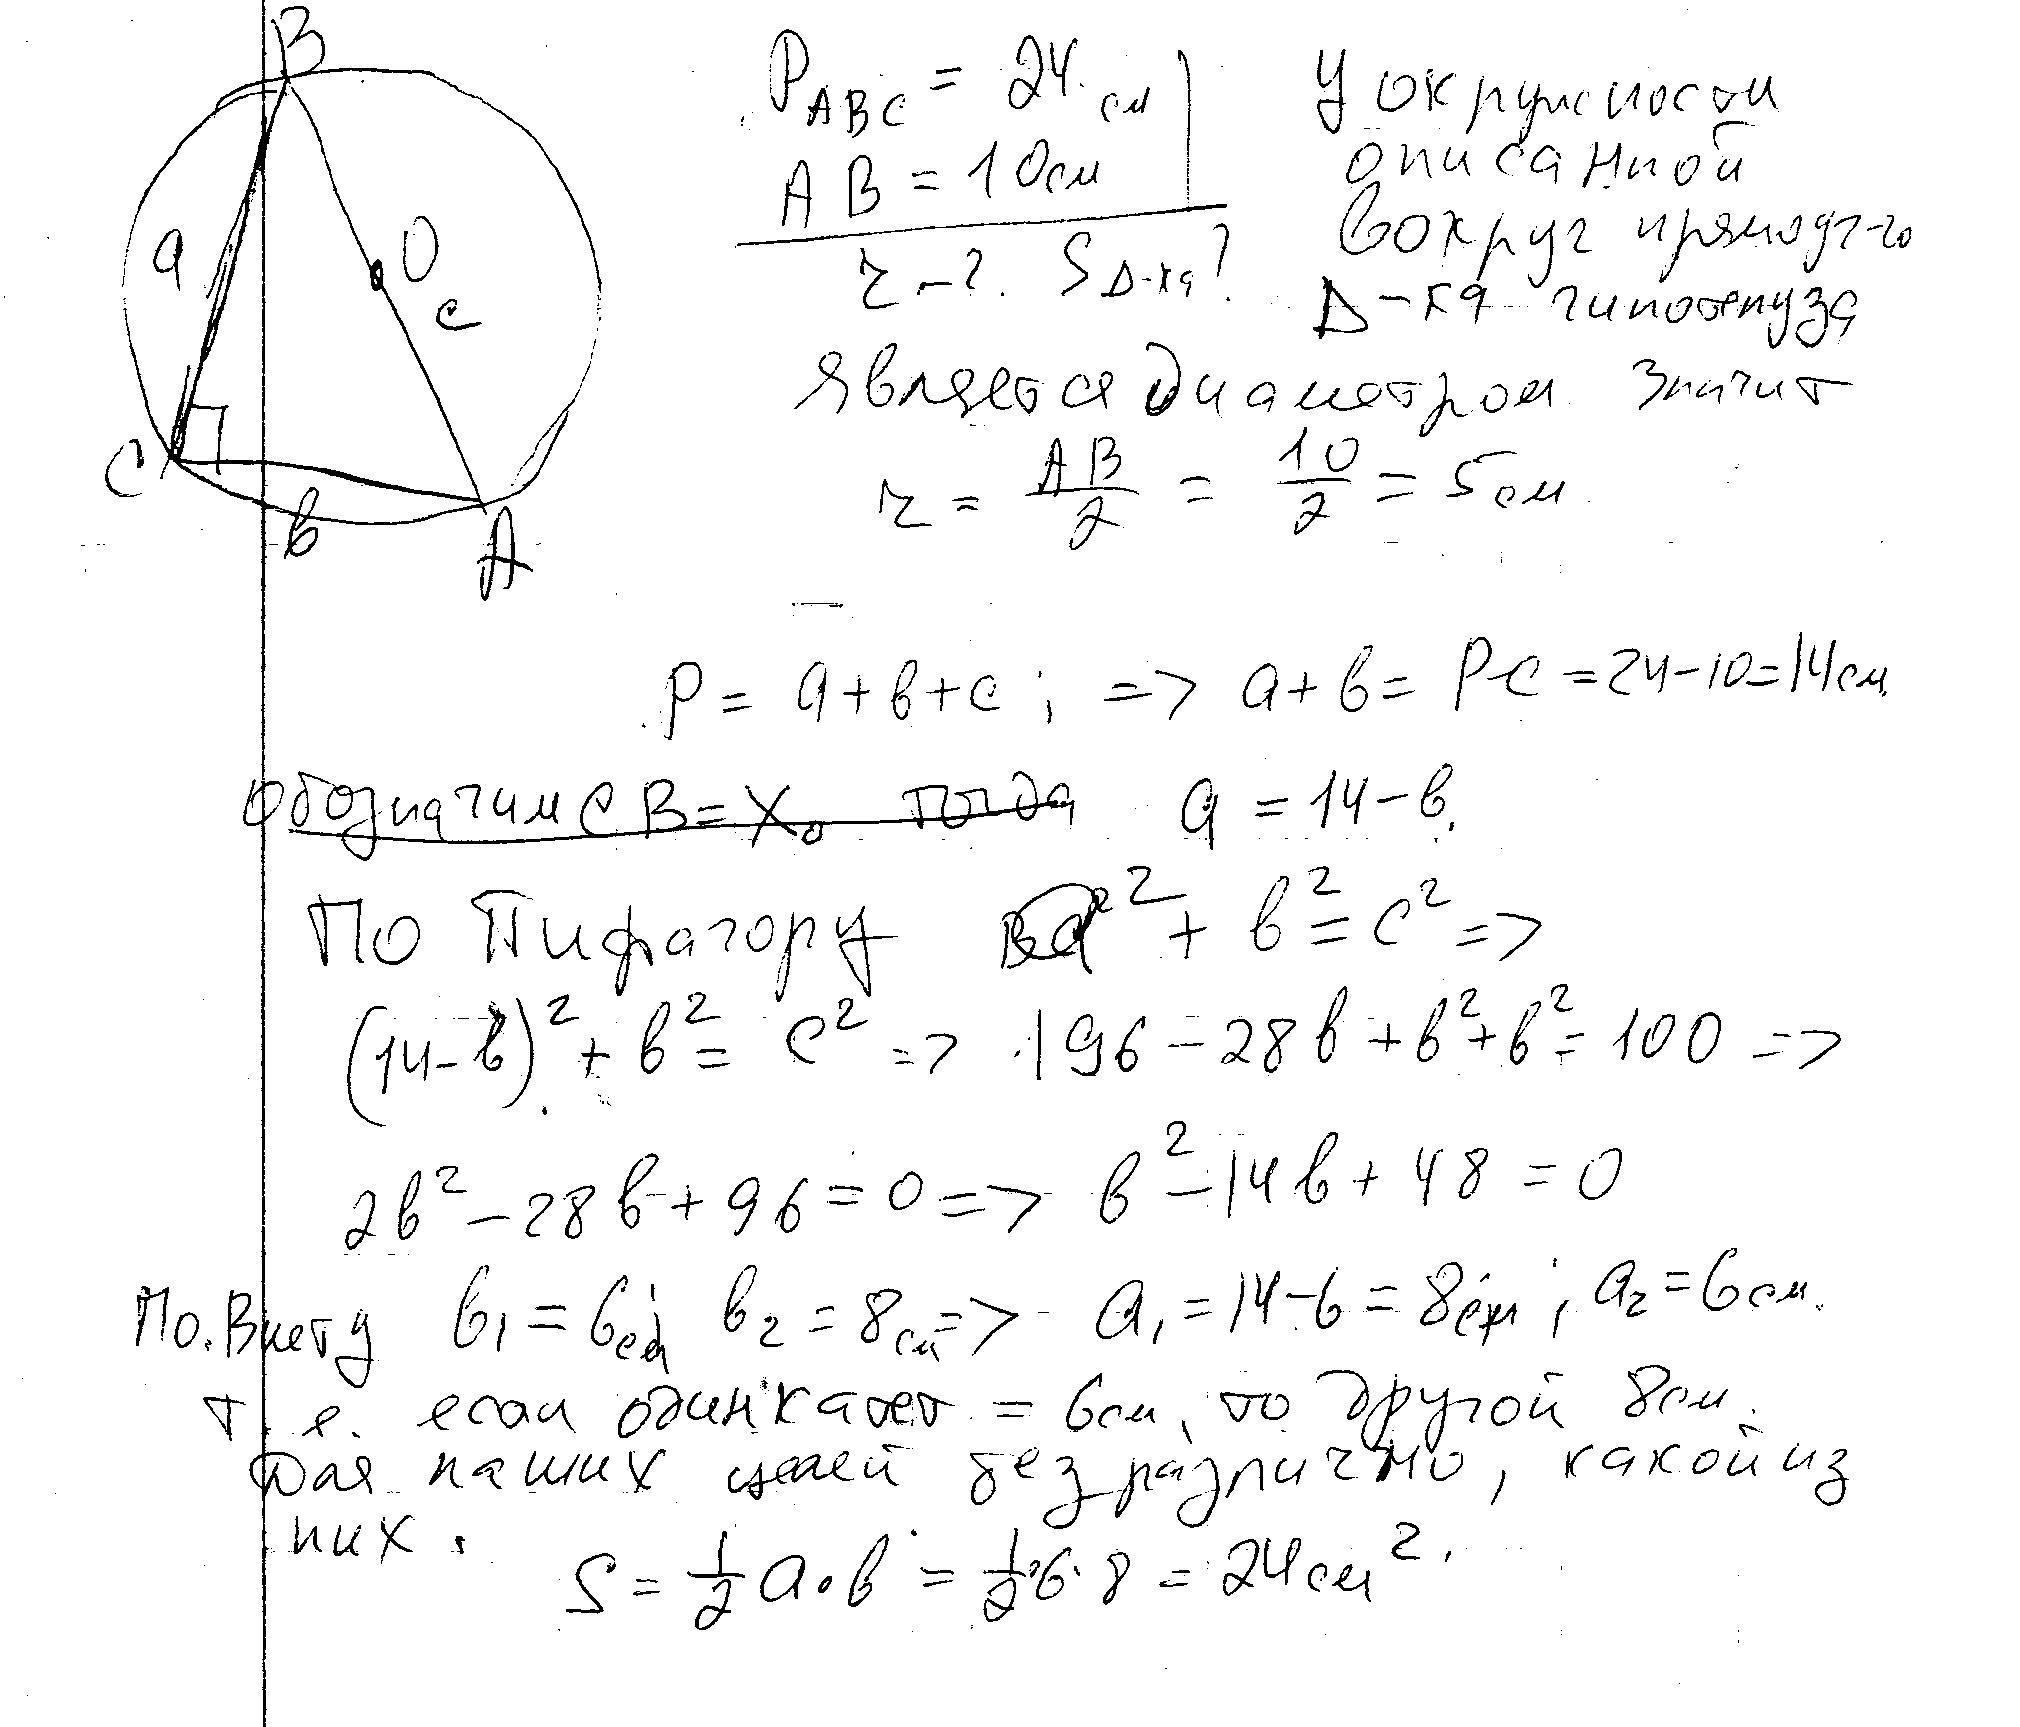 B
a
O
c
C
b
A
P_ABC = 24 см
AB = 10 см
r - ?. S Δ-ка ?
У окружности
описанной
вокруг прямоуг-го
Δ-ка гипотенуза
является диаметром. Значит
r = AB/2 = 10/2 = 5 см
P = a + b + c ; => a + b = P-c = 24 - 10 = 14 см.
Обозначим CB = x. тогда a = 14 - b.
По Пифагору a² + b² = c² =>
(14 - b)² + b² = c² => 196 - 28b + b² + b² = 100 =>
2b² - 28b + 96 = 0 => b² - 14b + 48 = 0
По. Виету b₁ = 6 см; b₂ = 8 см => a₁ = 14 - 6 = 8 см ; a₂ = 6 см.
т. е. если один катет = 6 см, то другой 8 см.
Для наших целей безразлично, какой из
них.
S = 1/2 a · b = 1/2 · 6 · 8 = 24 см².